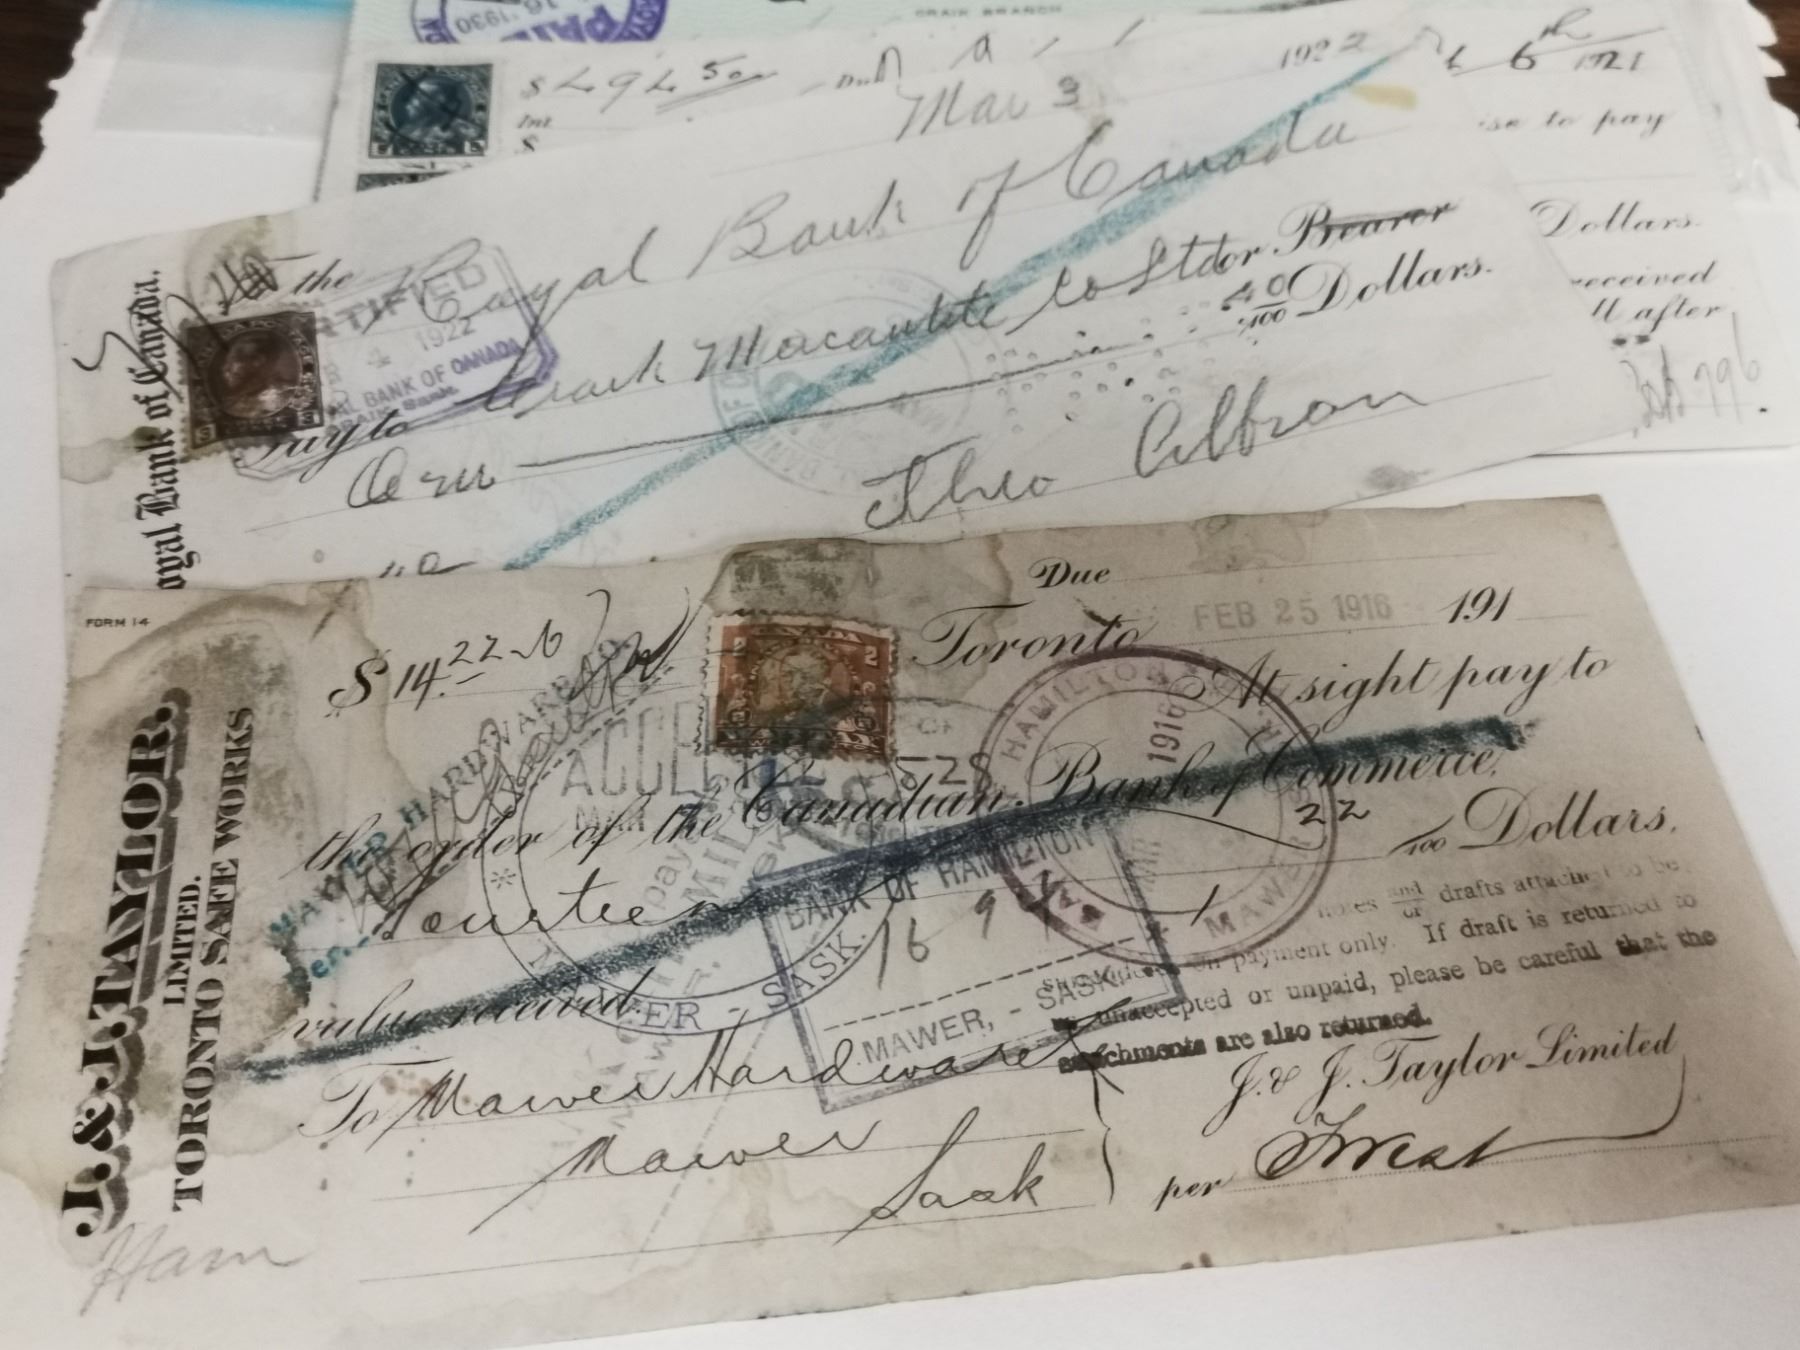 16 1930
PAID
CRAIK BRANCH
$ 494 50
Due
1922
6th 1921
Int
$
Mar 3
ise to pay
Royal Bank of Canada.
the Royal Bank of Canada
CERTIFIED
4 1922
BANK OF CANADA
Pay to Craik Macantile Co Ltd or Bearer
40/100 Dollars.
Dollars.
received
after
One
Theo
796
3 3
FORM 14
J. & J. TAYLOR.
LIMITED.
TORONTO SAFE WORKS
Due
$ 14.22
2 2
Toronto FEB 25 1916 191
At sight pay to
the order of the Canadian Bank of Commerce,
Fourteen 22/100 Dollars,
value received
MAWER HARDWARE CO.
Per
ACCEPTED
MAWER - SASK.
HAMILTON
1916
MAWER
BANK OF HAMILTON
16 9
MAWER, - SASK.
notes and/or drafts attached to be
surrendered on payment only. If draft is returned
unaccepted or unpaid, please be careful that the
attachments are also returned.
To Mawer Hardware
Mawer
Sask
J. & J. Taylor Limited
per
Ham